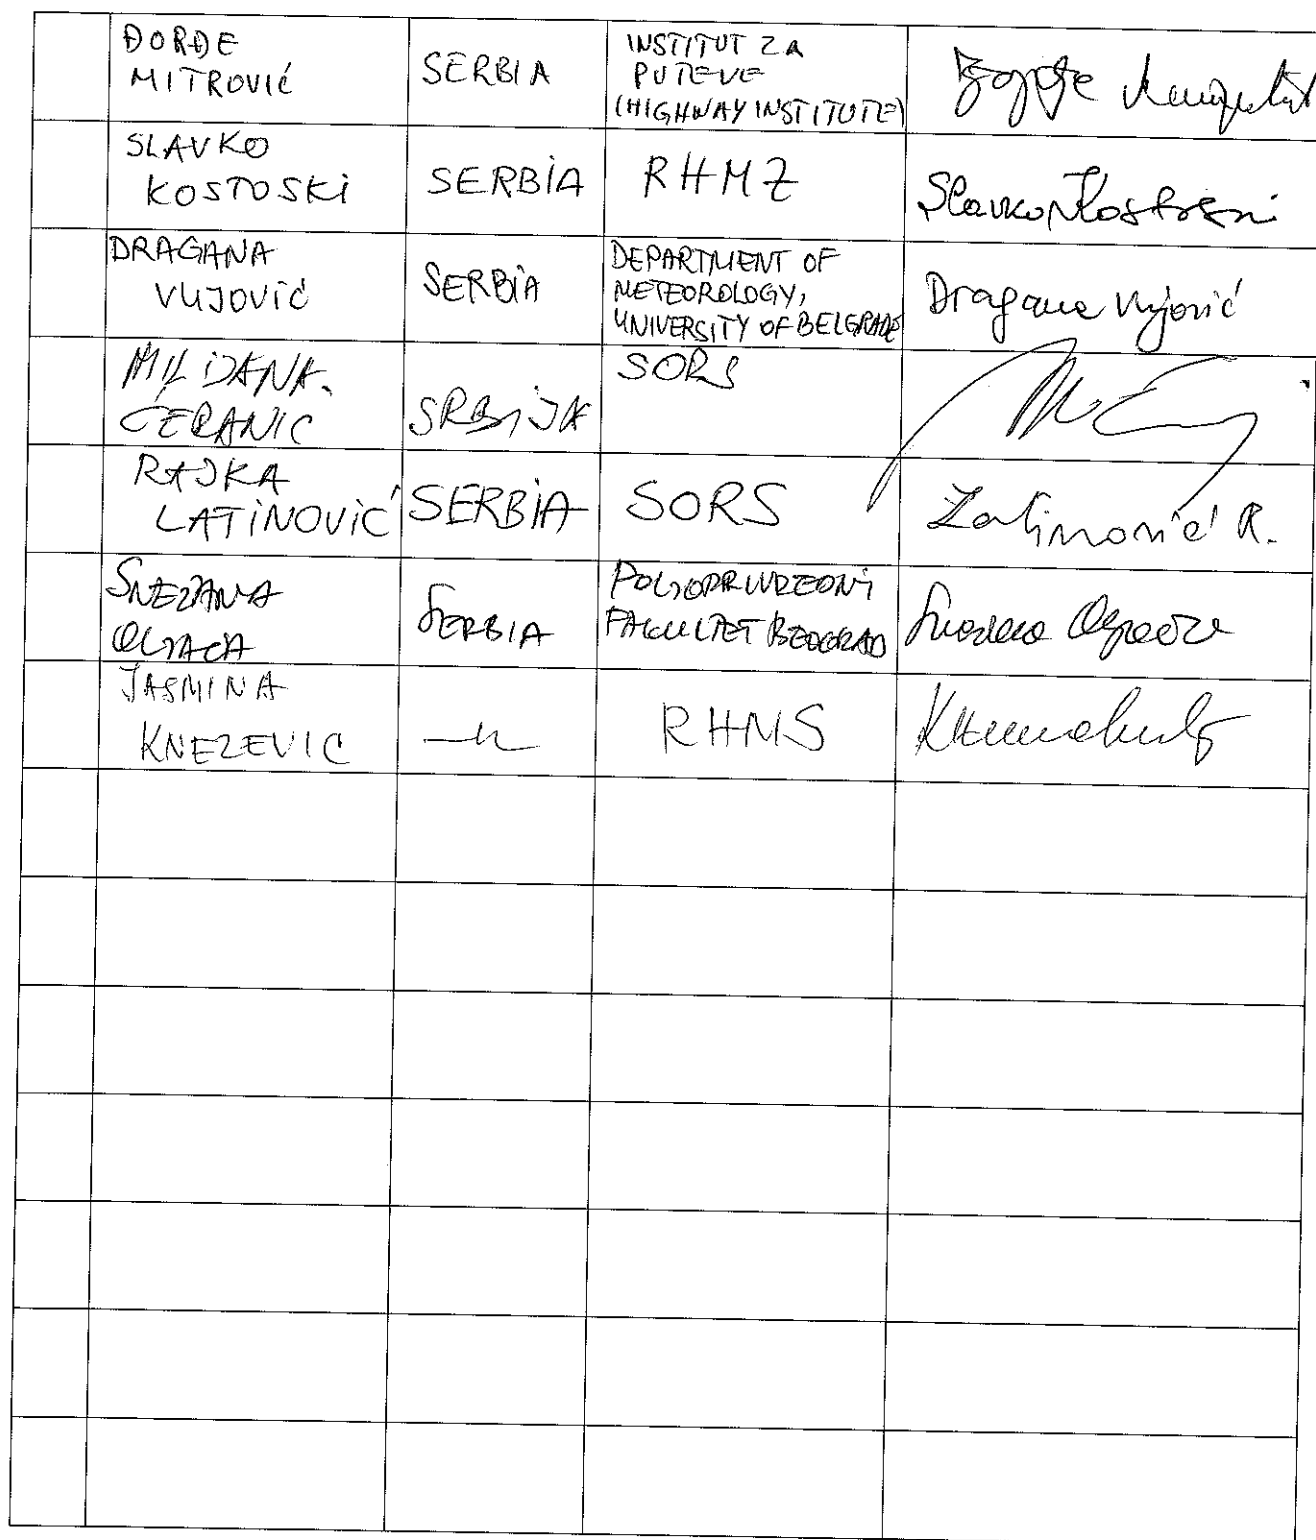 ĐORĐE
MITROVIĆ
SERBIA
INSTITUT ZA
PUTEVE
(HIGHWAY INSTITUTE)
SLAVKO
KOSTOSKI
SERBIA
RHMZ
Slavko Kostoski
DRAGANA
VUJOVIĆ
SERBIA
DEPARTMENT OF
METEOROLOGY,
UNIVERSITY OF BELGRADE
Dragana Vujović
MILJANA
ĆERANIC
SRBIJA
SORS
RAJKA
LATINOVIĆ
SERBIA
SORS
Latinović R.
SNEŽANA
OLJAČA
SERBIA
POLJOPRIVREDNI
FAKULTET BEOGRAD
JASMINA
KNEZEVIC
RHMS